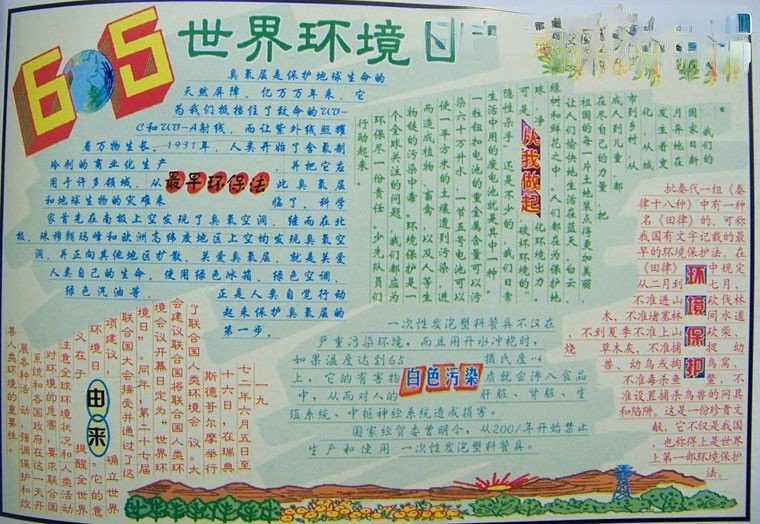 6 5
世界环境日
臭氧层是保护地球生命的
天然屏障。亿万万年来，它
为我们抵挡住了致命的UV-
C和UV-A射线，而让紫外线照耀
着万物生长。1931年，人类开始了含氟制
冷剂的商业化生产 并把它应
用于许多领域，从 此臭氧层
和地球生物的灾难来 临了，科学
家首先在南极上空发现了臭氧空洞，继而在北
极、珠穆朗玛峰和欧洲高纬度地区上空均发现臭氧空
洞，并正向其他地区扩散、关爱臭氧层，就是关爱
人类自己的生命，使用绿色冰箱、绿色空调、
绿色汽油等， 正是人类自觉行动
起来保护臭氧层的
第一步。
最早环保法
我们的
国家日新
月异地在
发生着变
化，从城
市到乡村，从
成人到儿童，都
在尽自己的力量，把
祖国的每一片土地装点得更加美丽
让人们愉快地生活在蓝天、白云、
绿树和鲜花中。我们都在为保护地
球、净 化环境出力。
可是， 破坏环境的“
隐性杀手”还是不少的，我们日常
生活中用的废电池就是其中一种
一粒钮扣电池的重金属含量可以污
染六十万升水，一节五号电池可以
使一平方米的土壤遭到污染，进
而造成植物、畜禽，以及人等生
物链的污染中毒。环境保护是一
个全球关注的问题，我们都应为
环保尽一份责任，少先队员们
行动起来。
从我做起
批秦代一组《秦
律十八种》中有一种
名《田律》的，可称
我国有文字记载的最
早的环境保护法。在
《田律》中规定
从二月到 七月，
不准进山 砍伐林
木，不准堵塞林 间水道
不到夏季不准上山 砍柴、
烧草木灰，不准捕 捉幼
兽、幼鸟或掏 鸟窝、
不准毒杀鱼 鳖，不
准设置捕杀鸟兽的网具
和陷阱，这是一份珍贵文
献，它不仅是我国
也称得上是世界
上第一部环境保护
法。
环境保护
一次性发泡塑料餐具不仅在
严重污染环境，而且用开水冲艳时，
如果温度达到65 摄氏度以
上，它的有害物 质就会渗入食品
中，从而对人的 肝脏、肾脏、生
殖系统、中枢神经系统造成损害。
国家经贸委曾明令，从2001年开始禁止
生产和使用一次性发泡塑料餐具。
白色污染
一九
七二年六月五日至
十六日，在瑞典
斯德哥尔摩举行
了联合国人类环境会议。大
会建议联合国将联合国人类环
境会议开幕日定为“世界环
境日”。同年，第二十七届
联合国大会接受并通过了这
项建议， 确立世界
环境日 。它的意
义在于 提醒全世界
注意全球环境状况和人类活动
对环境的危害，要求联合国
系统和各国政府在这一天开
展各种活动，强调保护和改
善人类环境的重要性。
由来